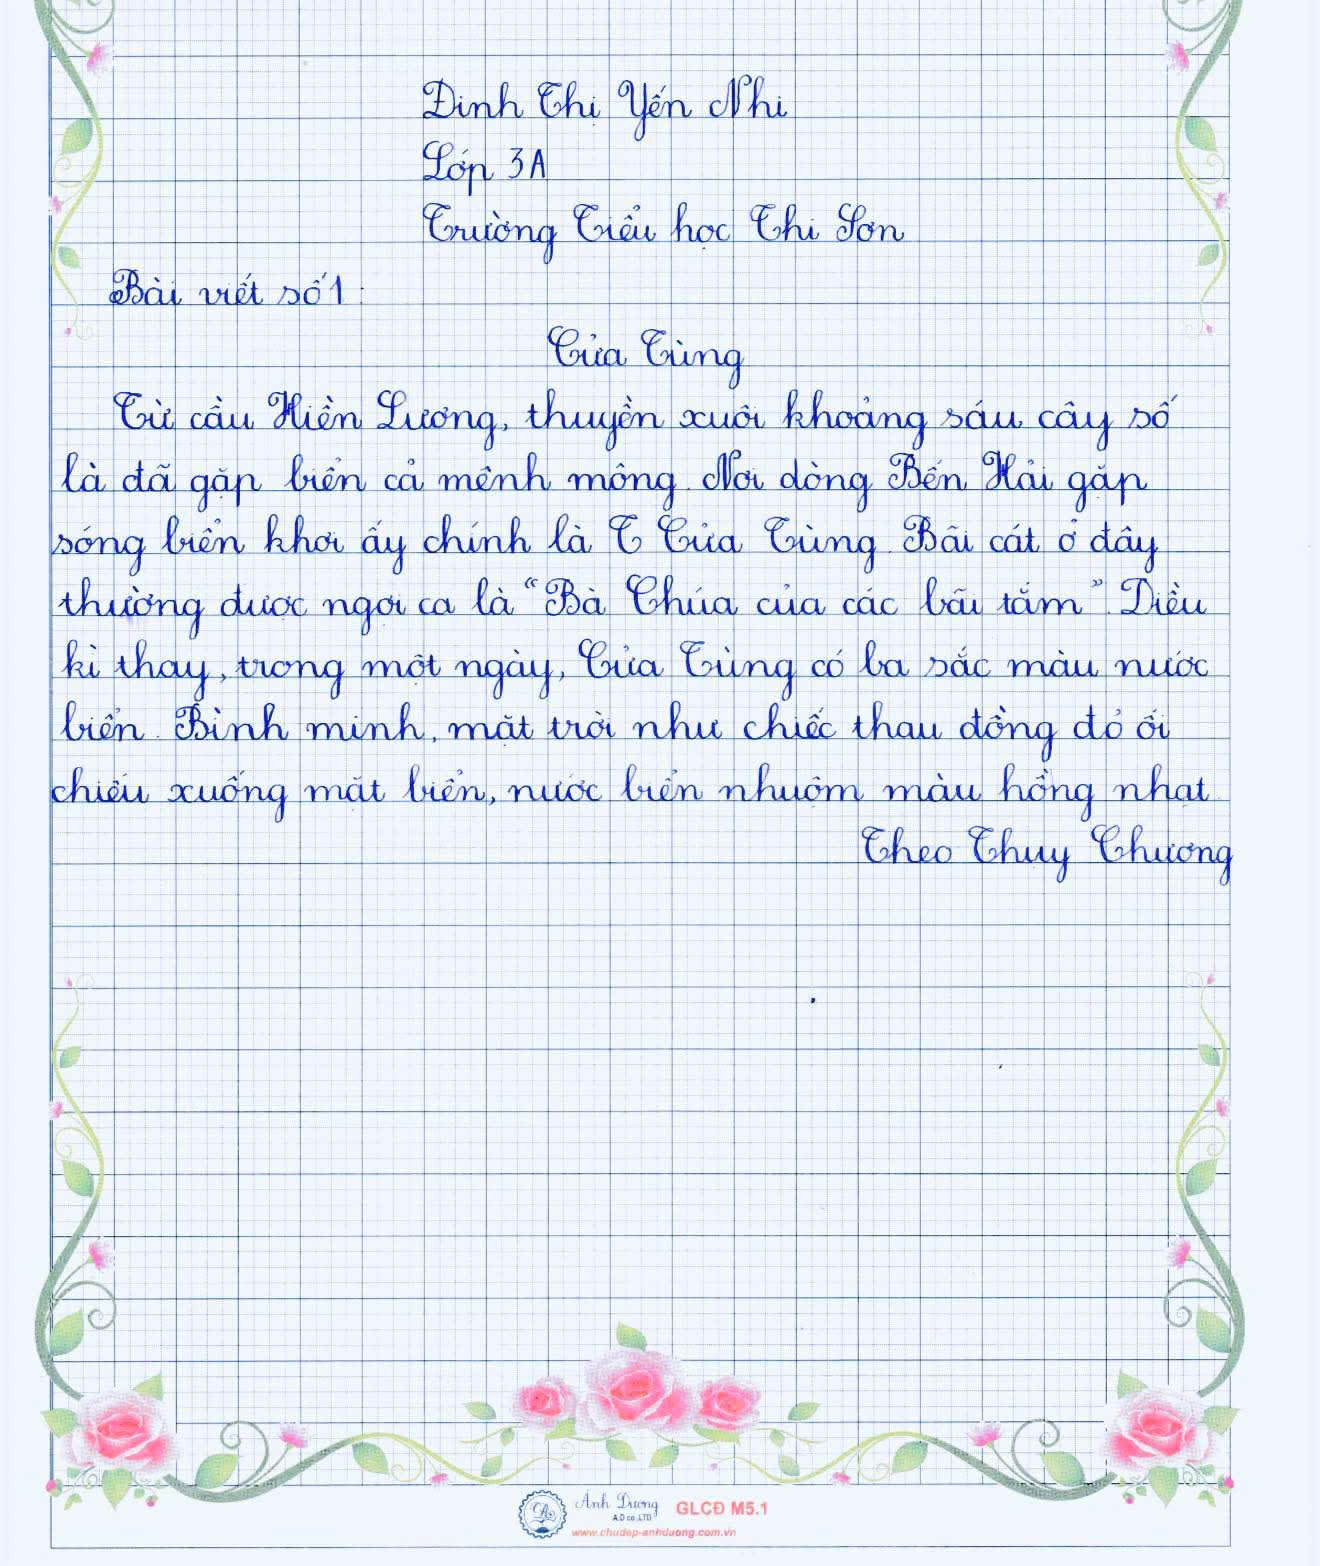 Đinh Thị Yến Nhi
Lớp 3A
Trường Tiểu học Thi Sơn
Bài viết số 1:
Cửa Tùng
Từ cầu Hiền Lương, thuyền xuôi khoảng sáu cây số
là đã gặp biển cả mênh mông. Nơi dòng Bến Hải gặp
sóng biển khơi ấy chính là C Cửa Tùng. Bãi cát ở đây
thường được ngợi ca là "Bà Chúa của các bãi tắm". Diệu
kì thay, trong một ngày, Cửa Tùng có ba sắc màu nước
biển. Bình minh, mặt trời như chiếc thau đồng đỏ ối
chiếu xuống mặt biển, nước biển nhuộm màu hồng nhạt.
Theo Thuỵ Chương
Ánh Dương GLCĐ M5.1
A.D co.,LTD
www.chudep-anhduong.com.vn